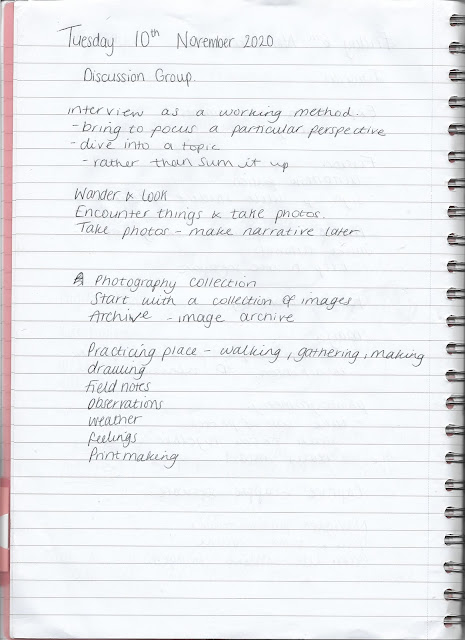 Tuesday 10th November 2020
Discussion Group.
interview as a working method.
- bring to focus a particular perspective
- dive into a topic
- rather than sum it up
Wander & look
Encounter things & take photos.
Take photos - make narrative later
A Photography collection
Start with a collection of images
Archive - image archive
Practicing place - walking, gathering, making
drawing
field notes
observations
weather
feelings
Printmaking